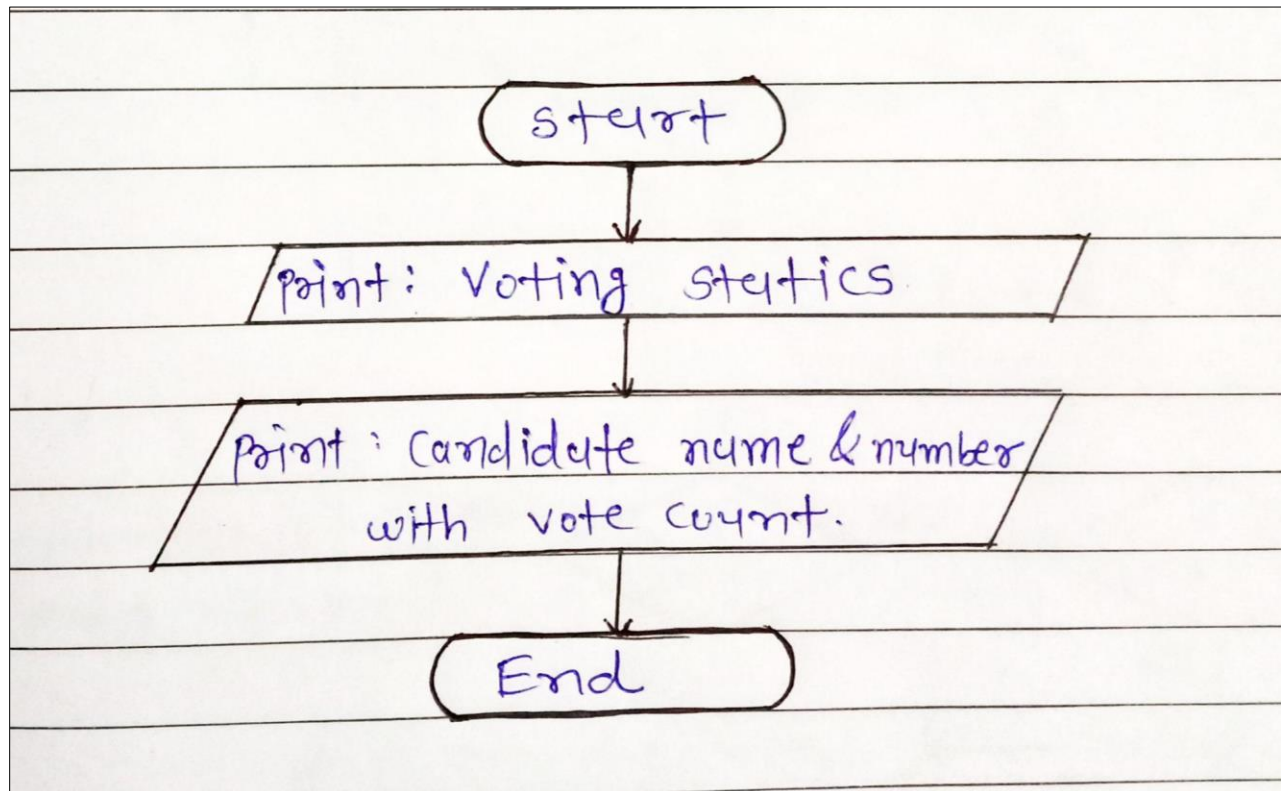 Start
Print: Voting statics
Print: Candidate name & number
with vote count.
End